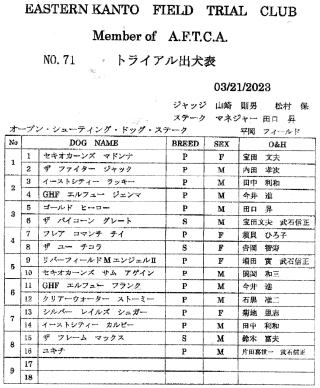 EASTERN KANTO FIELD TRIAL CLUB
Member of A.F.T.C.A.
NO. 71 トライアル出犬表
03/21/2023
ジャッジ 山崎 則男 松村 保
ステーク マネジャー 田口 昇
オープン・シューティング・ドッグ・ステーク 平岡 フィールド
No DOG NAME BREED SEX O&H
1 1 セキオカーンズ マドンナ P F 宝田 文夫
2 ザ ファイター ジャック P M 内田 孝次
2 3 イーストシティー ラッキー P M 田中 利和
4 GHF エルフュー ジェンマ P M 今井 進
3 5 ゴールド ヒーロー P M 田口 昇
6 ザ バイコーン グレート S M 宝田文夫 武石信正
4 7 フレア コマンチ テイ P F 須賀 ひろ子
8 ザ ユー テコラ S F 吉岡
5 9 リバーフィールドMエンジェルⅡ P F 増田 實 武石信正
10 セキオカーンズ サム アゲイン P M 関岡 和三
6 11 GHF エルフュー フランク P M 今井 進
12 クリアーウォーター ストーミー P M 石黒 準二
7 13 シルバー レイルズ シュガー P F 菊地 里志
14 イーストシティー カルビー P M 田中 利和
8 15 ザ フレーム マックス S M 鈴木 富夫
16 ユキチ P M 片田喜世一 武石信正
9 17
18